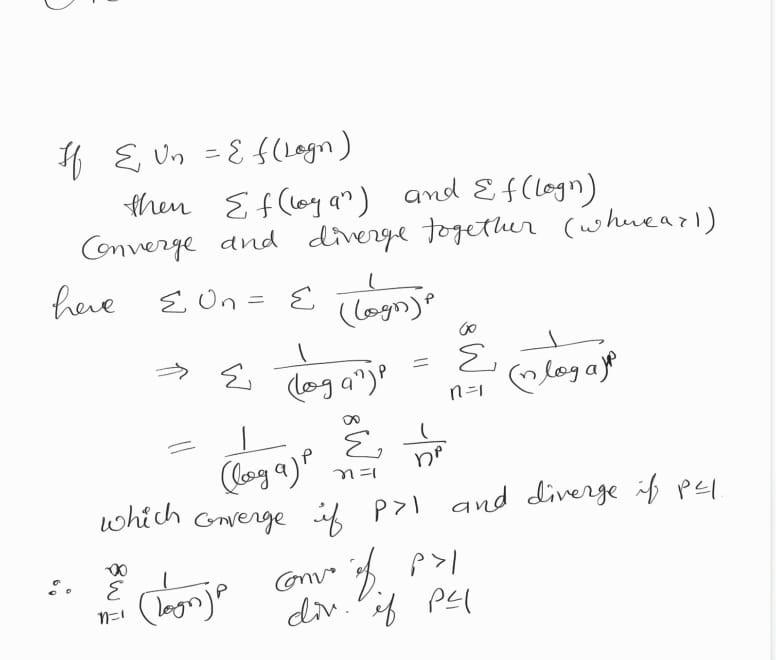 If Σ Un = Σ f(Logn)
then Σ f(log aⁿ) and Σ f(logn)
Converge and diverge together (where a>1)
here Σ Un = Σ 1/(logn)^p
⇒ Σ 1/(log aⁿ)^p = Σ_{n=1}^{∞} 1/(n log a)^p
= 1/(log a)^p Σ_{n=1}^{∞} 1/n^p
which converge if P>1 and diverge if P≤1
∴ Σ_{n=1}^{∞} 1/(logn)^p conv if P>1
div. if P≤1